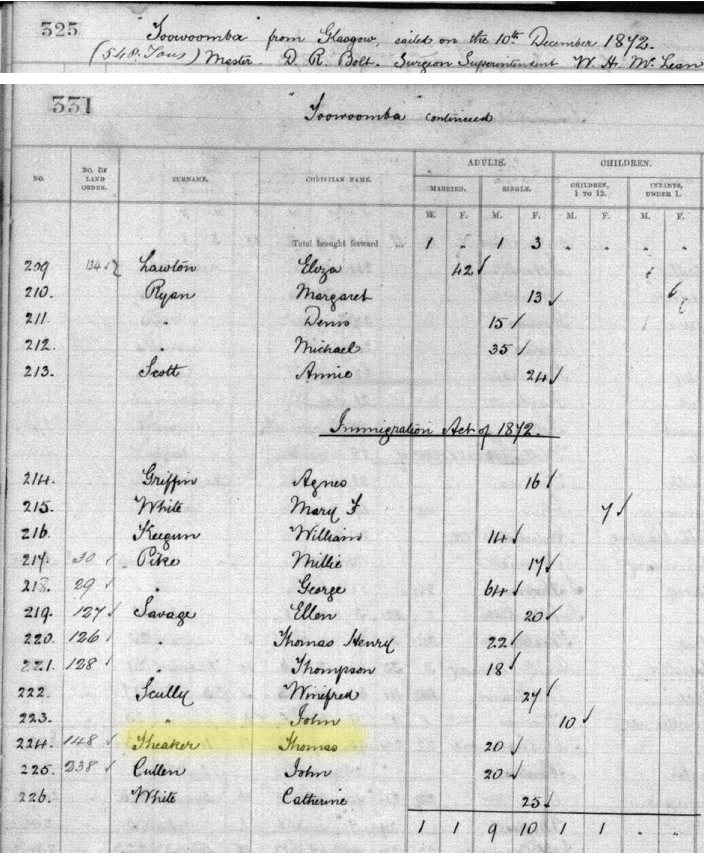 325
"Toowoomba" from Glasgow, sailed on the 10th December 1872.
(548. Tons) Master. D. R. Bolt. Surgeon Superintendent W. H. McLean
331
"Toowoomba" continued
ADULTS. CHILDREN.
NO. NO. OF LAND ORDER. SURNAME. CHRISTIAN NAME. MARRIED. SINGLE. CHILDREN, 1 TO 12. INFANTS, UNDER 1.
M. F. M. F. M. F. M. F.
Total brought forward ... 1 " 1 3 " " " "
209 134 ✓ Lawton Eliza 42 ✓
210. Ryan Margaret 13 ✓
211 " Denis 15 ✓
212 Michael 35 ✓
213. Scott Annie 24 ✓
Immigration Act of 1872.
214. Griffin Agnes 16 ✓
215. White Mary F 7 ✓
216. Keegun William 14 ✓
217 30 ✓ Pike Millie 17 ✓
218. 29 ✓ " George 64 ✓
219. 127 ✓ Savage Ellen 20 ✓
220. 126 ✓ " Thomas Henry 22 ✓
221. 128 ✓ Thompson 18 ✓
222. Scully Winifred 27 ✓
223. " John 10 ✓
224. 148 ✓ Theaker Thomas 20 ✓
225. 238 ✓ Cullen John 20 ✓
226. White Catherine 25 ✓
1 1 9 10 1 1 " "